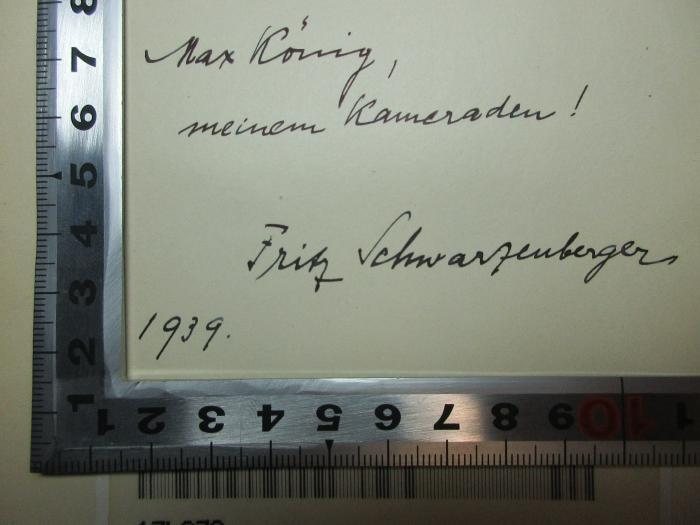 Max König,
meinem Kameraden!
Fritz Schwarzenberger
1939.
8
7
6
5
4
3
2
1
1 2 3 4 5 6 7 8 9 10 1